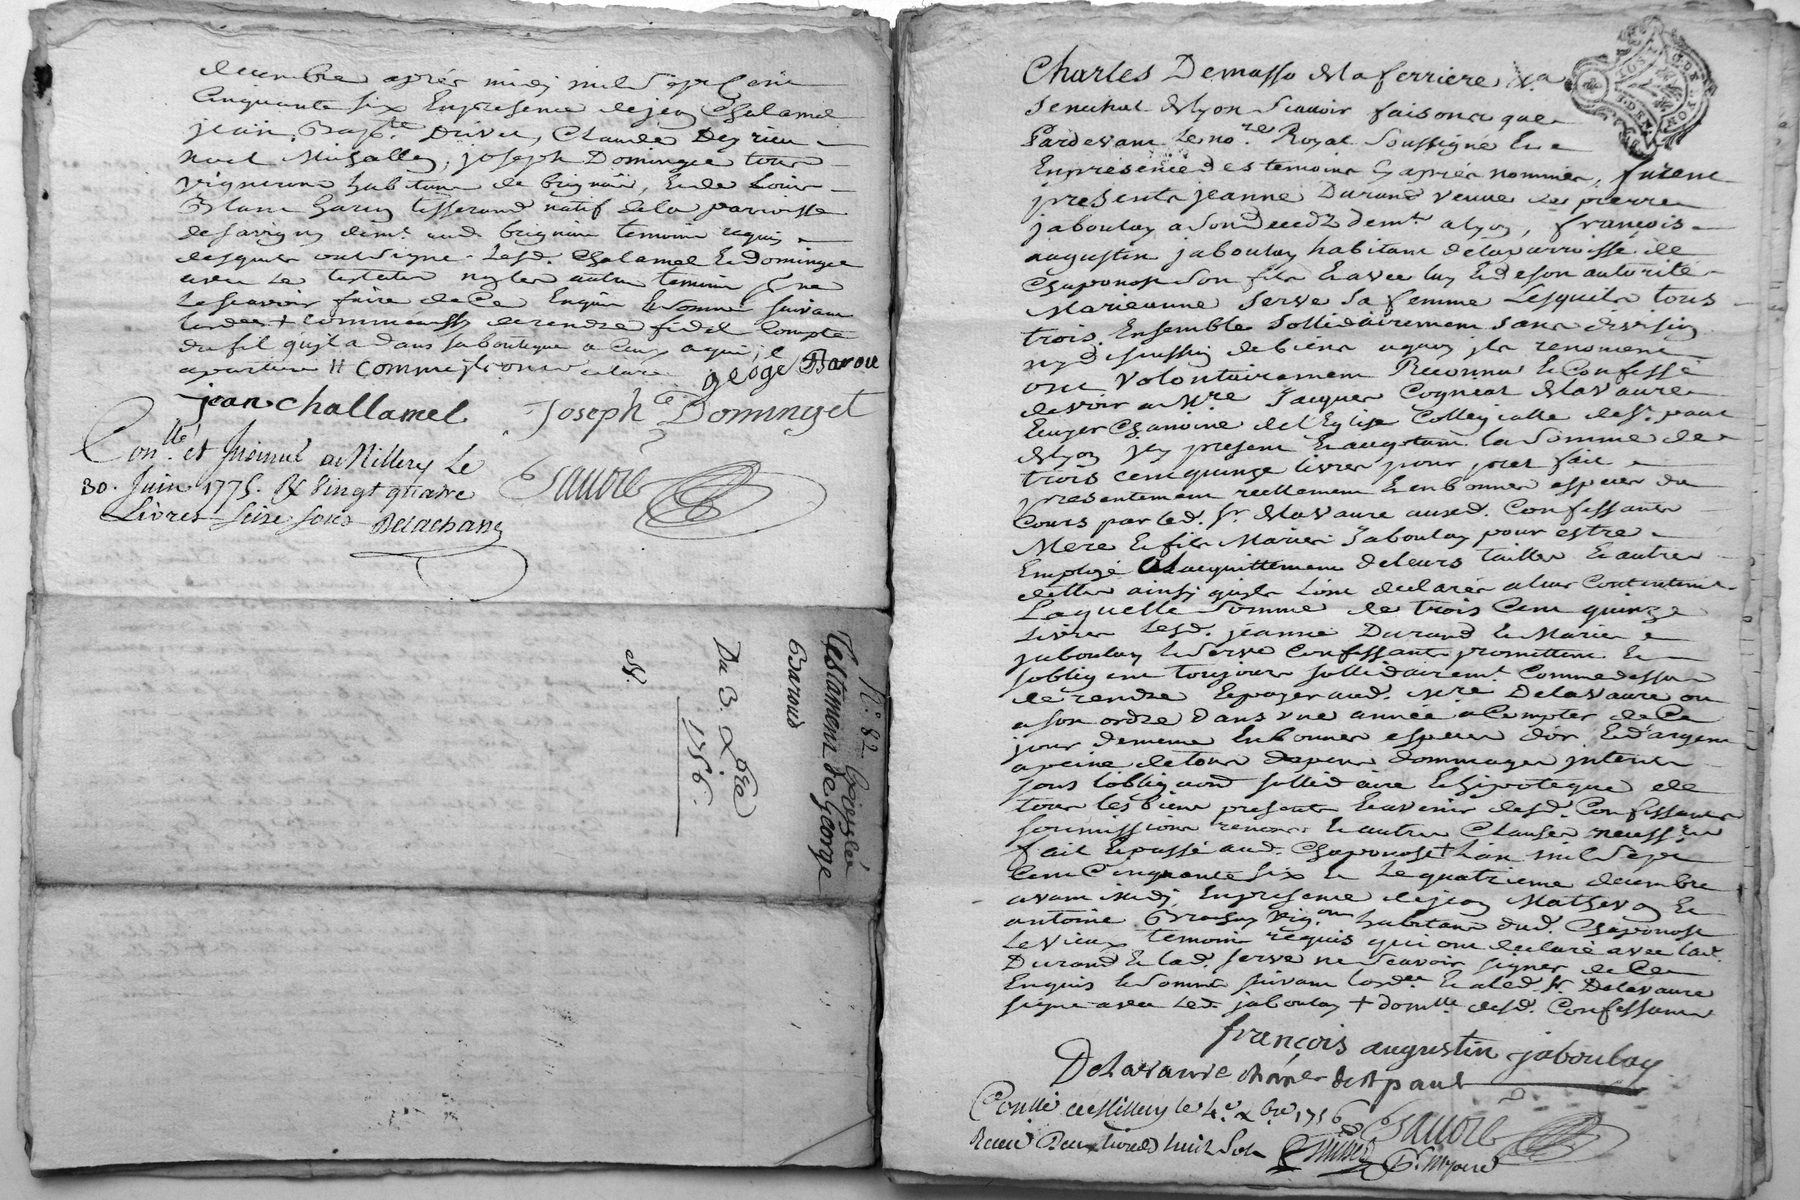 decembre après midj mil sept Cent
Cinquante six En presence de jean Chalamel
jean Bapte. Drivet, Claude Deyrieu
joseph Domingee tous
vignerons habitans de brignais, et de Louis
Blanc Garin tisserand natif de la parroisse
de savigny demt. aud. brignais temoins requis
lesquels ont signé Lesd. Chalamel et Domingee
avec le testateur ny les autres temoins pour ne
le scavoir faire de ce Enquis et sommés suivant
lordce +
du fil quil a dans sa boutique a Ceux a qui il
apartient
george Baroud
jean challamel Joseph Dominget
Conllé et Insinué a Millery Le
30. Juin 1775. Rx vingt quatre
Livres seize sols Delachan
N.° 82 Grossoié
Testament de George
Baroud
Du 3. Xbre
1756.
Charles Demasso de la ferriere
senechal de lyon scavoir faisons que
Pardevant le nore. Royal soussigné et
En presence des temoins cy après nommés, furent
presents jeanne Durand veuve de pierre
jaboulay a son deced demt. a lyon, françois
augustin jaboulay habitant de la parroisse de
Chaponost son fils et avec luy et de son autorité
Marieanne serve sa femme Lesquels tous
trois Ensemble sollidairement sans division
ny discussion de biens a quoy ils renoncent
ont volontairement Reconnu et Confessé
devoir a Mre. Jacques Cogniat de la vaure
Ecuyer Chanoine de l'Eglise Collegialle de st. paul
de lyon jcy present et acceptant la somme de
trois cent quinze livres pour prest fait
presentement reellement et en bonnes especes du
Cours par led. sr. de la vaure auxd. Confessants
Mere et fils Mariés jaboulay pour estre
Employé a l'acquittement de leurs tailles et autres
dettes ainsi quils l'ont declaré a leur Contentement
Laquelle somme de trois Cent quinze
livres Lesd. jeanne Durand et Mariés
jaboulay et serve Confessants promettent et
sobligent toujours sollidairemt. Comme dessus
de rendre et payer aud. Mre. Delavaure ou
a son ordre dans une année a Compter de Ce
jour de meme En bonnes especes d'or et d'argent
a peine de tous depens dommages jnterets
sous l'obligaôn sollidaire et hipoteque de
tous les biens presents et avenir desd. Confessants
soumissions renonc. et autres Clauses necess.res
fait et passé aud. Chaponost + L'an mil sept
Cent Cinquante six et le quatrieme decembre
avant midj, En presence de jean Mathevon et
antoine habitans dud. Chaponost
Le vieux temoins requis qui ont declaré avec lad.
Durand et lad. serve ne scavoir signer de Ce
Enquis et sommés suivant lordce. et a led. sr. Delavaure
signé avec led. jaboulay + domlle desd. Confessants
françois augustin jaboulay
Delavaure chner de st paul
Conllé a Millery le 4.e Xbre 1756
Receu Deux livres huit Sols